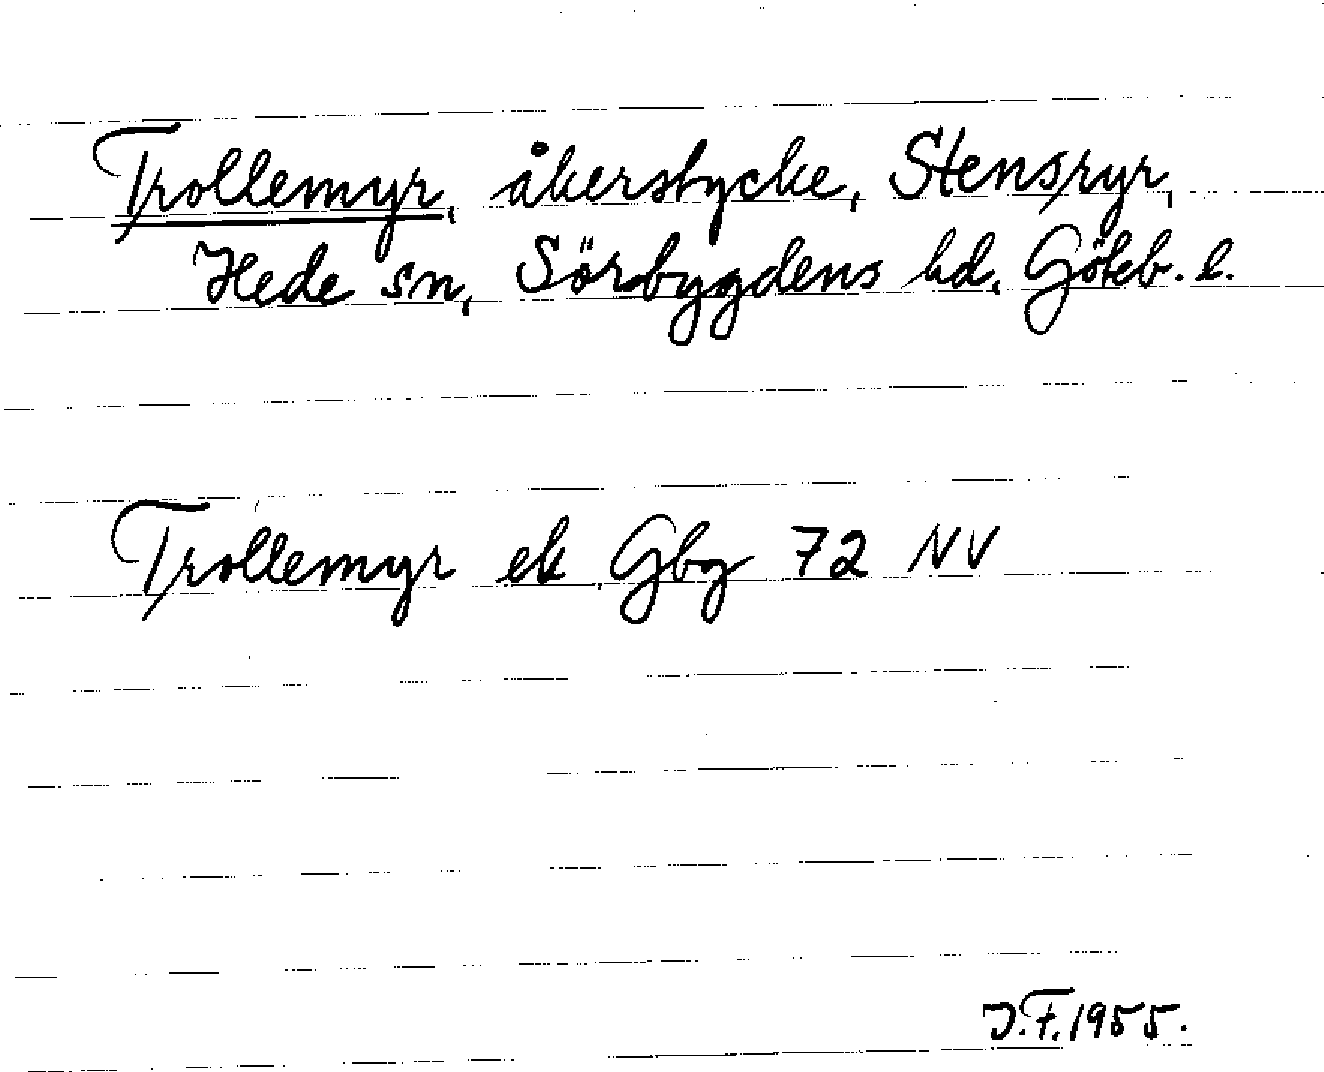 Trollemyr, åkerstycke, Stensryr,
Hede sn, Sörbygdens hd, Göteb. l.
Trollemyr ek Gbg 72 NV
J.F. 1955.